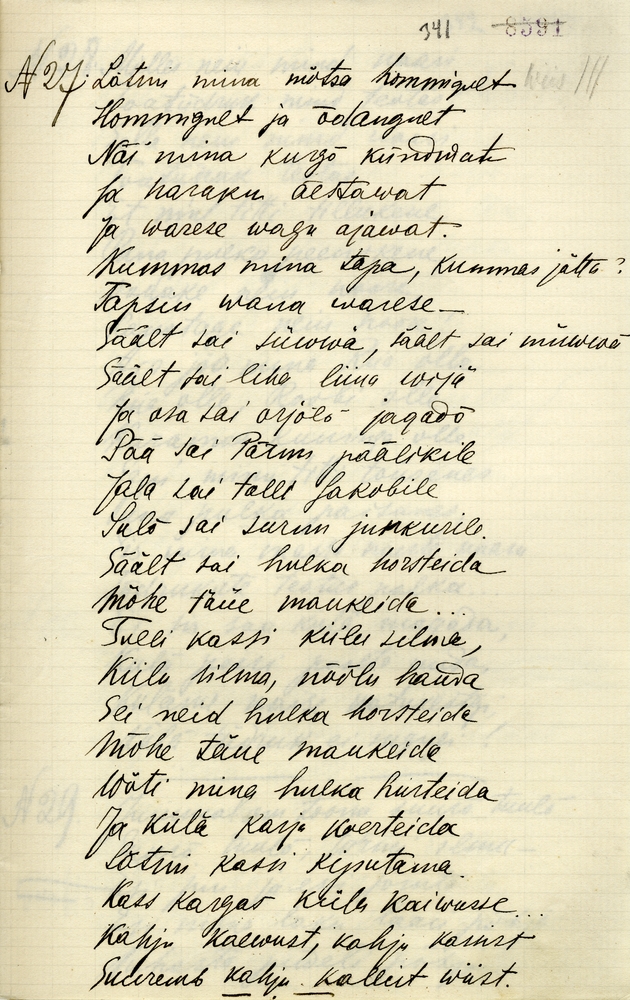 341 8591
N 27. Lötsin mina mõtsa hommiguet
Hommiguet ja õdanguet
Näi mina kurgõ kündwat
Ja haraku äestawat
Ja warese wagu ajawat.
Kummas mina tapa, kummas jätta?
Tapsin wana warese
Säält sai süwwä, säält sai müwwä
Säält sai liha liina wijä
Ja osa sai orjolõ jagadõ
Pää sai Pärnu päälikile
Jala sai talli Jakobile
Sulõ sai suruu junkurile.
Säält sai hulka horsteida
Mõhe täüe maukeida...
Tulli kassi kiilu silma,
Kiilu silma, nõõlu handa
Sei neid hulka horsteida
Mõhe täüe maukeida
Wõti mina hulka hursteida
Ja külä karja koerteida
Lötsin kassi kiputama.
Kass kargas küllä kaiwusse...
Kahju kaewust, kahju kassist
Suuremb kahju kalleit wiist.